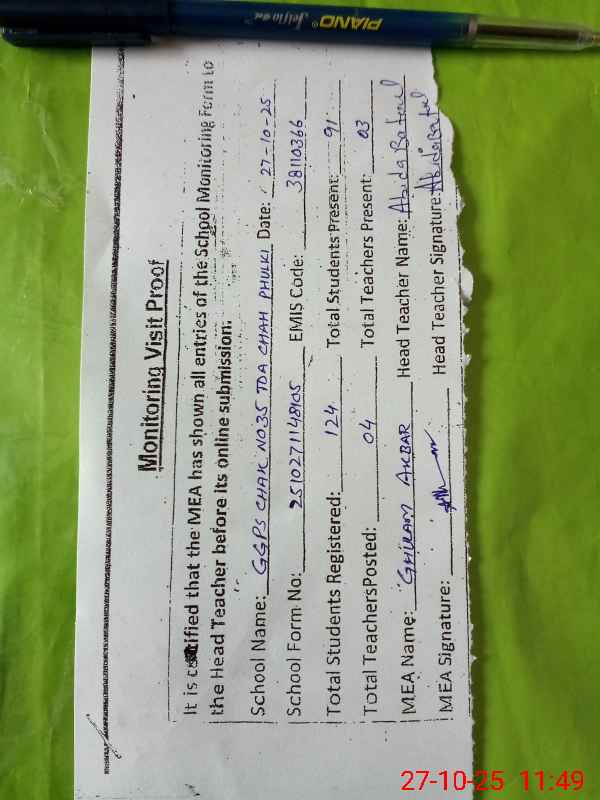 PIANO® Jellion
Monitoring Visit Proof
It is certified that the MEA has shown all entries of the School Monitoring Form to
the Head Teacher before its online submission.
School Name: GGPS CHAK NO35 TDA CHAH PHULKI Date: 27-10-25
School Form No: 2510271148105 EMIS Code: 38110366
Total Students Registered: 124 Total Students Present: 91
Total TeachersPosted: 04 Total Teachers Present: 03
MEA Name: GHULAM AKBAR Head Teacher Name: Abida Batool
MEA Signature: Head Teacher Signature: Abida Batool
27-10-25 11:49